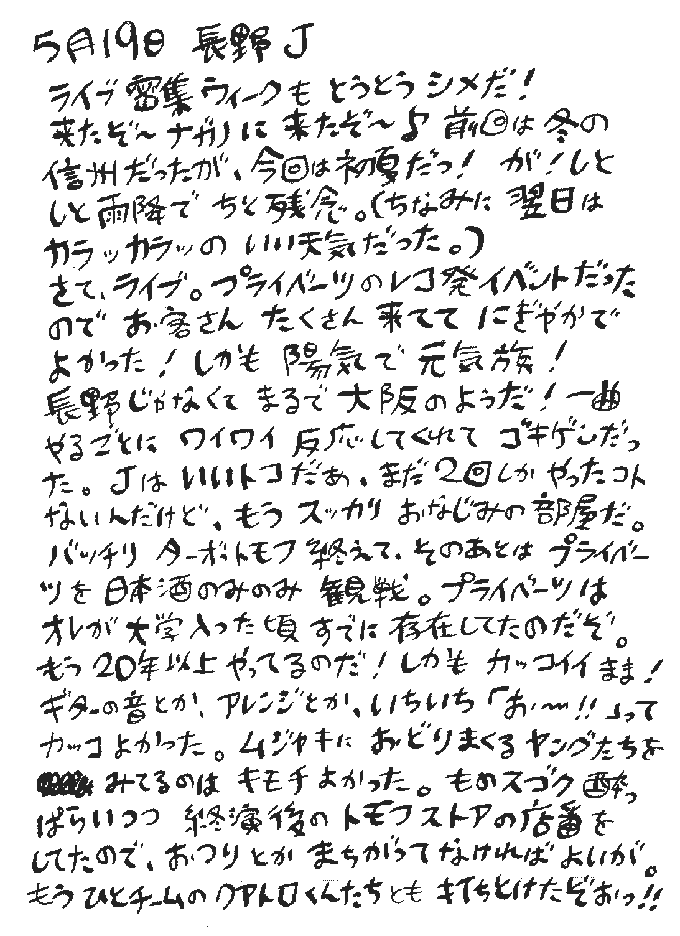 5月19日 長野J
ライブ密集ウィークも とうとう シメだ！
来たぞ〜 ナガノに 来たぞ〜♪ 前回は 冬の
信州だったが、今回は初夏だっ！ が！しと
しと雨降で ちと残念。（ちなみに 翌日は
カラッカラッの いい天気だった。）
さて、ライブ。プライベーツのレコ発イベントだった
ので お客さん たくさん 来てて にぎやかで
よかった！ しかも 陽気で 元気族！
長野じゃなくて まるで 大阪のようだ！ 一曲
やるごとに ワイワイ 反応してくれて ゴキゲンだっ
た。Jは いいトコだあ、まだ 2回しか やったコト
ないんだけど、もう スッカリ おなじみの 部屋だ。
バッチリ ターボトモフ 終えて、そのあとは プライベー
ツを 日本酒のみのみ 観戦。プライベーツは
オレが 大学入った頃 すでに 存在してたのだぞ。
もう 20年以上 やってるのだ！ しかも カッコイイ まま！
ギターの音とか、アレンジとか、いちいち「お〜!!」って
カッコよかった。ムジャキに おどりまくる ヤングたちを
みてるのは キモチよかった。ものスゴク 酔っ
ぱらいつつ 終演後の トモフストアの店番を
してたので、おつりとか まちがってなければ よいが。
もうひとチームの クアトロくんたちとも 打ちとけたぞおっ!!